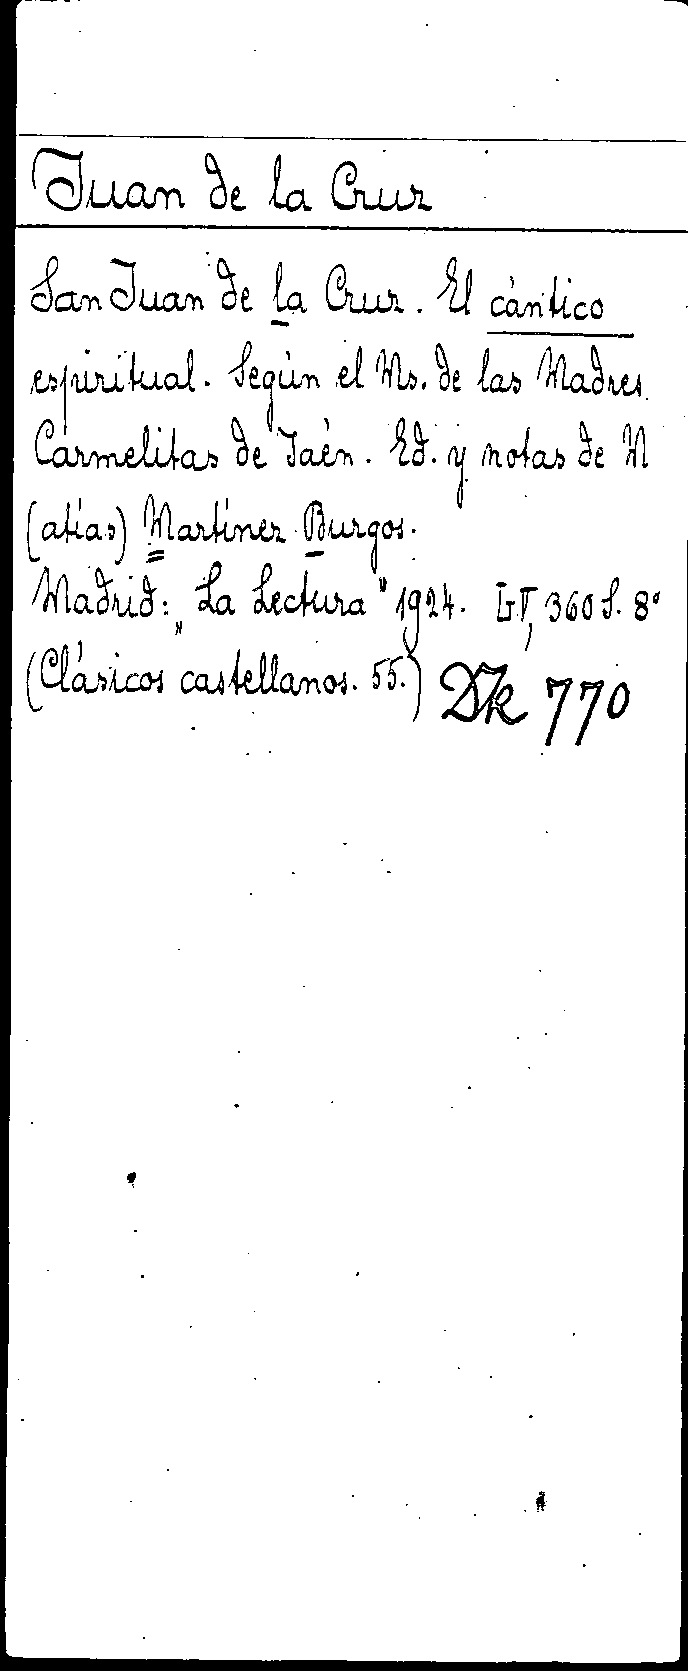 Juan de la Cruz
San Juan de la Cruz. El cántico
espiritual. Según el Ms. de las Madres
Carmelitas de Jaén. Ed. y notas de M
(atías) Martínez Burgos.
Madrid: „La Lectura" 1924. 360 S. 8°
(Clásicos castellanos. 55.) Dk 770